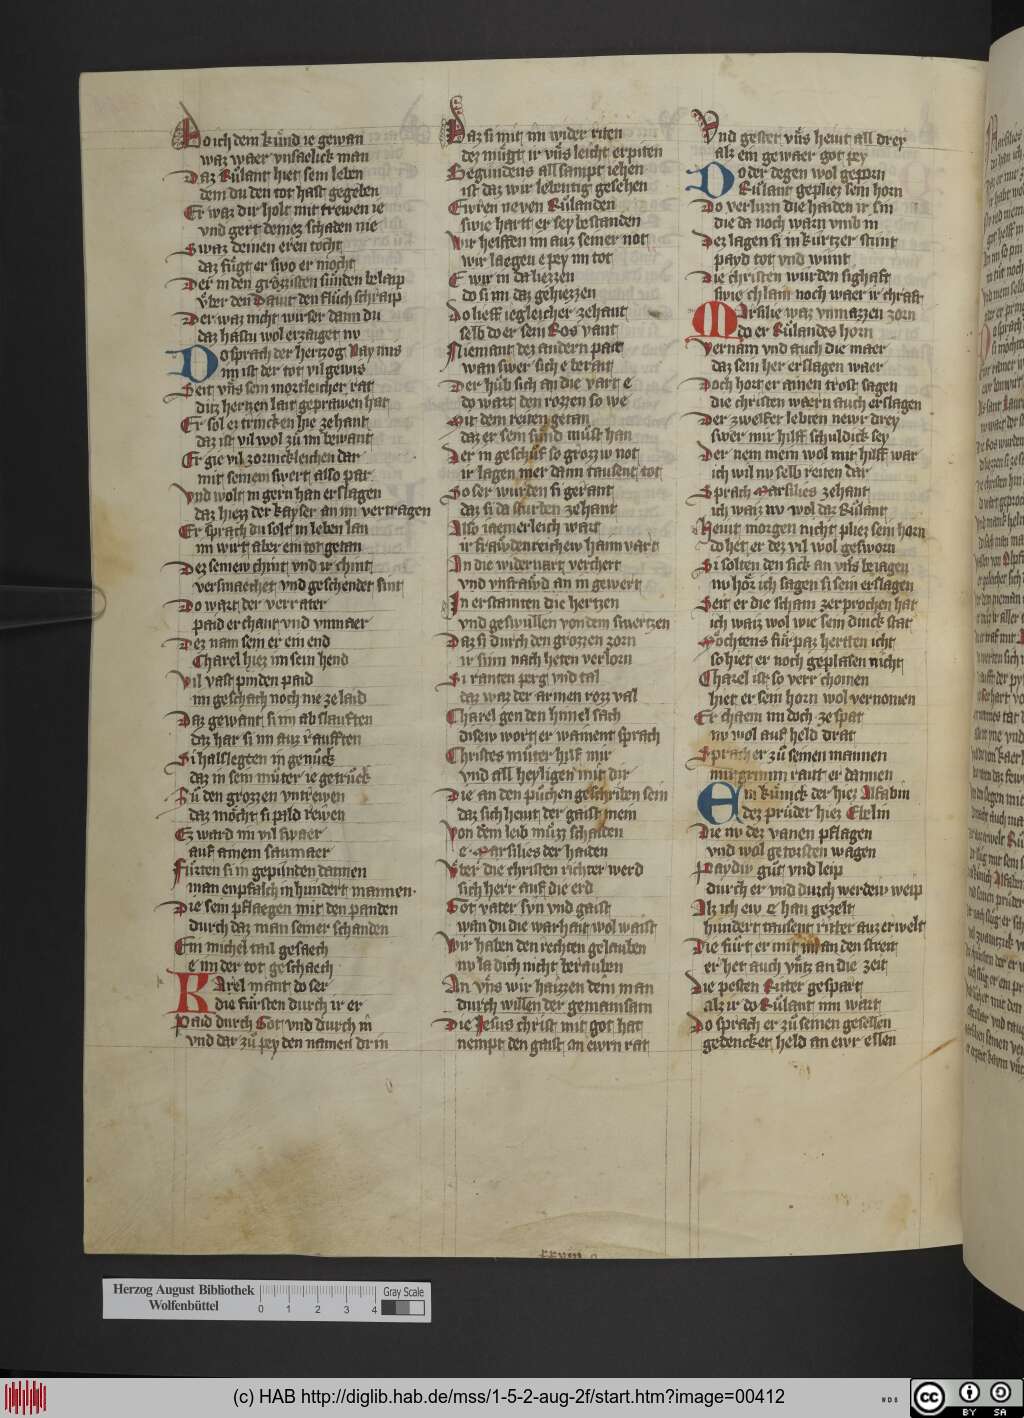 Do ich dem kúnd ie gewan
waz waer vnsaelick man
Daz Růlant hiet sein leben
dem du den tot hast gegeben
Er waz dir holt mit trewen ie
vnd gert deinez schaden nie
Swaz deinen eren tocht
daz fůgt er swo er mocht
Der in den grózzisten sůnden belaip
vber den Dauit den flůch schraip
Der waz nicht wirser dann du
daz hastu wol erzaiget nv
Do sprach der hertzog Naymis
im ist der tot vil gewis
Seit vns sein mortleicher rat
ditz hertzen lait geprawen hat
Er sol ez trincken hie zehant
daz ist vil wol zů im bewant
Er gie vil zornickleichen dar
mit seinem swert also par
Vnd wolt in gern han erslagen
daz hiez der kayser an im vertragen
Er sprach du solt in leben lan
im wirt aber ein tot getan
Dez seinew chint vnd ir chint
versmaechet vnd geschendet sint
Do wart der verrater
paid erchant vnd vnmaer
Dez nam sein er ein end
Charel hiez im sein hend
Vil vast pinden paid
im geschach noch nie ze laid
Daz gewant si im ab slaufften
daz har si im auz raufften
Si halslegten in genůck
daz in sein můter ie getrůck
Zů den grozzen vntrewen
daz mocht si pald rewen
Ez ward im vil swaer
auf ainem saumaer
Fůrten si in gepunden dannen
man enpfalch in hundert mannen
Die sein pflaegen mit den panden
durch daz man seiner schanden
Ein michel tail gesaech
e im der tot geschaech
Karel mant do ser
die fůrsten durch ir er
Paid durch Got vnd durch in
vnd dar zů pey den namen drin
Daz si mit im wider riten
dez můgt ir vns leicht erpiten
Begundens all sampt iehen
ist daz wir lebentig gesehen
Ewren neven Růlanden
swie hart er sey bestanden
Wir helffen im auz seiner not
wir laegen e pey im tot
E wir in da liezzen
do si im daz gehiezzen
Do lieff iegleicher zehant
selb do er sein Ros vant
Niemant dez andern pait
wan swer sich e berait
Der hůb sich an die vart e
do wart den rozzen so we
Mit dem reiten getan
daz er sein sund můst han
Der in geschůf so grozzw not
ir lagen mer dann tausent tot
So ser wurden si gerant
daz si da sturben zehant
Also iaemerleich wart
ir frawdenreichew hainvart
In die widervart verchert
vnd vnfrawd an in gewert
In erstainten die hertzen
vnd geswullen von dem smertzen
Daz si durch den grozzen zorn
ir sinn nach heten verlorn
Si ranten perg vnd tal
daz waz der armen rozz val
Charel gen den himel sach
disew wort er wainent sprach
Christes můter hilf mir
vnd all heyligen mit dir
Die an den půchen geschriben sein
daz sich heut der gaist mein
Von dem leib můzz schaiden
e Marsilies der haiden
Vber die christen richter werd
sich herr auf die erd
Got vater svn vnd gaist
wan du die warhait wol waist
Wir haben den rechten gelauben
nv la dich nicht berauben
An vns wir haizzen dein man
durch willen der gemainsam
Die Jesus christ mit got hat
nempt den gaist an ewrn rat
Vnd gester vns heint all drey
alz ein gewaer got pey
Do der degen wol geporn
Růlant gepliez sein horn
Do verlurn die haiden ir sin
die da noch warn vmb in
Dez lagen si in kurtzer stunt
payd tot vnd wunt
Die christen wurden sighaft
swie chlain noch waer ir chraft
Marsilie waz vnmazzen zorn
do er Růlandes horn
Vernam vnd auch die maer
daz sein her erslagen waer
Doch hort er ainen trost sagen
die christen waern auch erslagen
Der zwelfer lebten newr drey
swer mir hilff schuldick sey
Der nem mein wol mit hilff war
ich wil nv selb reiten dar
Sprach Marsilies zehant
ich waiz nv wol daz Růlant
Heut morgen nicht pliez sein horn
do het er dez vil wol gesworn
Si solten den sick an vns beiagen
nv hór ich sagen si sein erslagen
Seit er die scham zerprochen hat
ich waiz wol wie sein dinck stat
Móchtens fůr paz herten icht
so hiet er noch geplasen nicht
Charel ist so verr chomen
hiet er sein horn wol vernomen
Er chaem im doch ze spat
nv wol auf held drat
Sprach er zů seinen mannen
mit grimm rait er dannen
Ein kůnick der hiez Alfabin
dez průder hiez Ebelin
Die nv dez vanen pflagen
vnd wol getorsten wagen
Paydiv gůt vnd leip
durch er vnd durch werdew weip
Alz ich ew e han gezelt
hundert tausent ritter auz erwelt
Die fůrt er mit im an den streit
er het auch vntz an die zeit
Die pesten Ritter gespart
alz ir do Růlant inn wart
Do sprach er zů seinen gesellen
gedencket held an ewr ellen
Herzog August Bibliothek
Wolfenbüttel
0 1 2 3 4
Gray Scale
(c) HAB http://diglib.hab.de/mss/1-5-2-aug-2f/start.htm?image=00412
WDB
CC BY SA